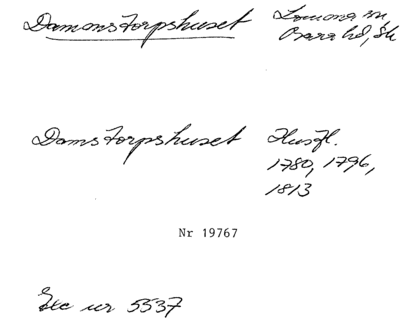 Damonstorpshuset Lomma sn
Bara hd, Sk
Damstorpshuset Husfl.
1780, 1796,
1813
Nr 19767
Exc nr 5537